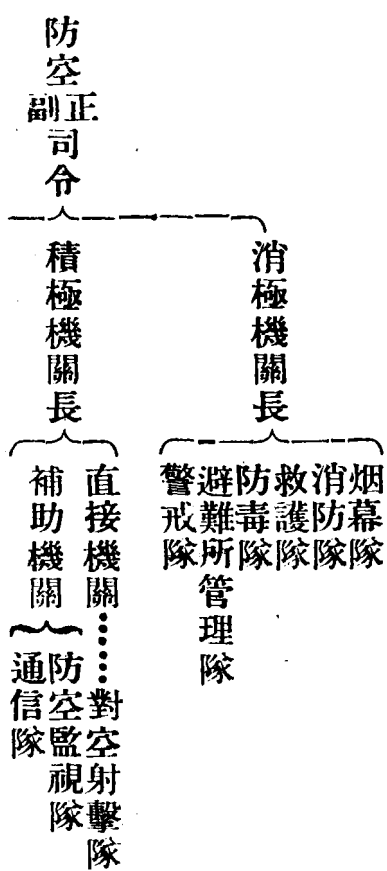 防空正副司令
消極機關長
烟幕隊
消防隊
救護隊
防毒隊
避難所管理隊
警戒隊
積極機關長
直接機關……對空射擊隊
補助機關
防空監視隊
通信隊